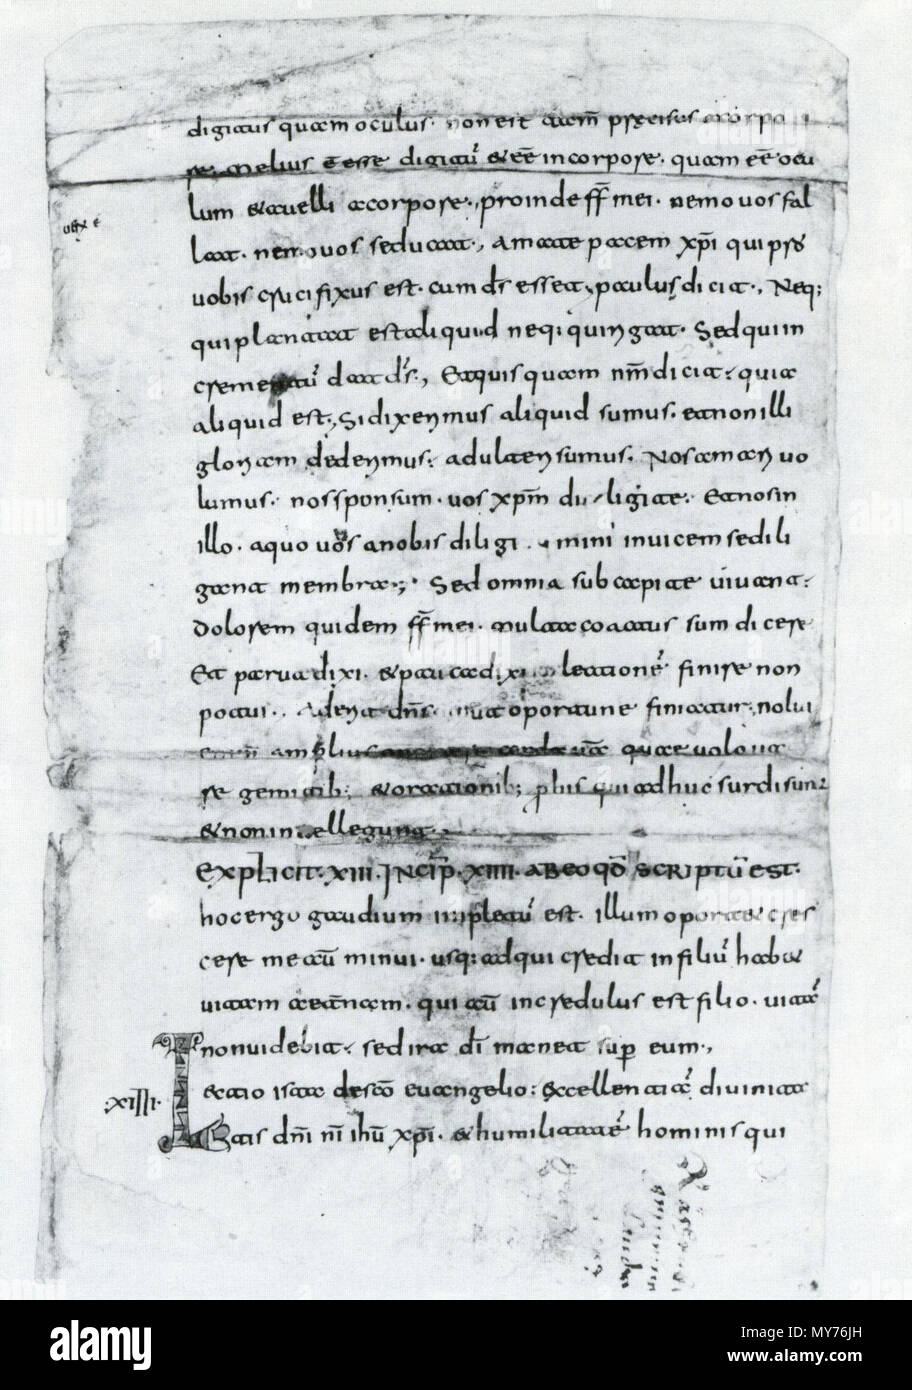 digitus quam oculus. non est tam̄ precisus a corpo
re. Melius ē esse digitū & eē in corpore. quam eē ocu
lum & auelli a corpore., proinde ff̄ mei. nemo uos fal
lat. nemo uos seducat., amate pacem xp̄i qui pro
uobis crucifixus est. cum d̄s esset, paulus dicit., Neq;
qui plantat est aliquid neq; qui rigat. Sed qui in
crementū dat d̄s., Et quisquam nr̄m dicit. quia
aliquid est, Si dixerimus aliquid sumus. et non illi
gloriam dederimus. adulteri sumus. Nos amari uo
lumus. nos sponsum. uos xp̄m diligite. Et nos in
illo. a quo uos a nobis diligi. mini inuicem se dili
gant membra; Sed omnia sub capite uiuant.
Dolorem quidem ff̄ mei. multa coactus sum dicere
Et parua dixi. & pauca dixi lectionē finire non
potui. Aderit dn̄s ut oportune finiatur, nolui
enim amplius uīa quae uolo ua
re gemitib; & orationib; p his qui adhuc surdi sunt
& non intellegunt.
EXPLICIT. XIII. INCIP̄. XIIII. AB EO QŌ SCRIPTŪ EST.
hoc ergo gaudium impletū est. illum oportet cres
cere me autē minui. usq; ad qui credit in filiū hab&
uitam aet̄nam. qui autē incredulus est filio. uitā
non uidebit. sed ira dī manet sup eum.,
.XIIII.
Lectio ista de scō euangelio: excellentiā diuinita
tis dn̄i nr̄i ihū xp̄i. & humilitatē hominis qui
alamy
MY76JH
www.alamy.com